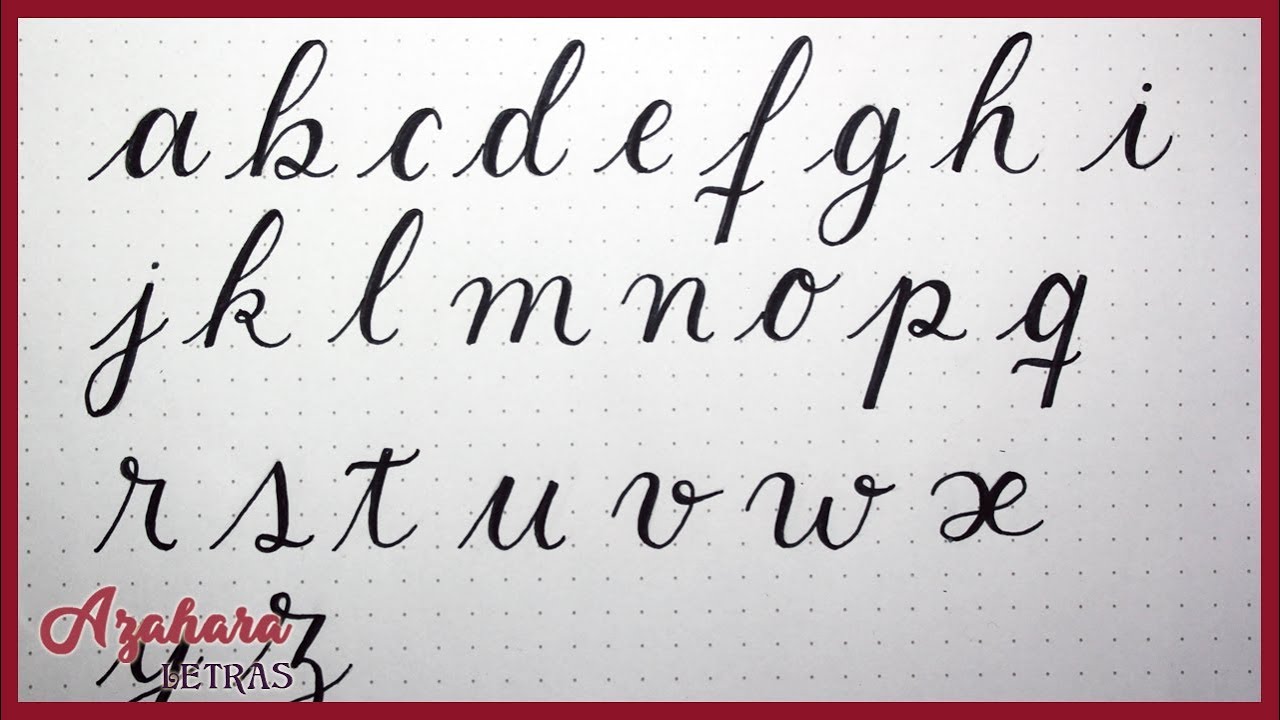 a b c d e f g h i
j k l m n o p q
r s t u v w x
y z
Azahara
LETRAS